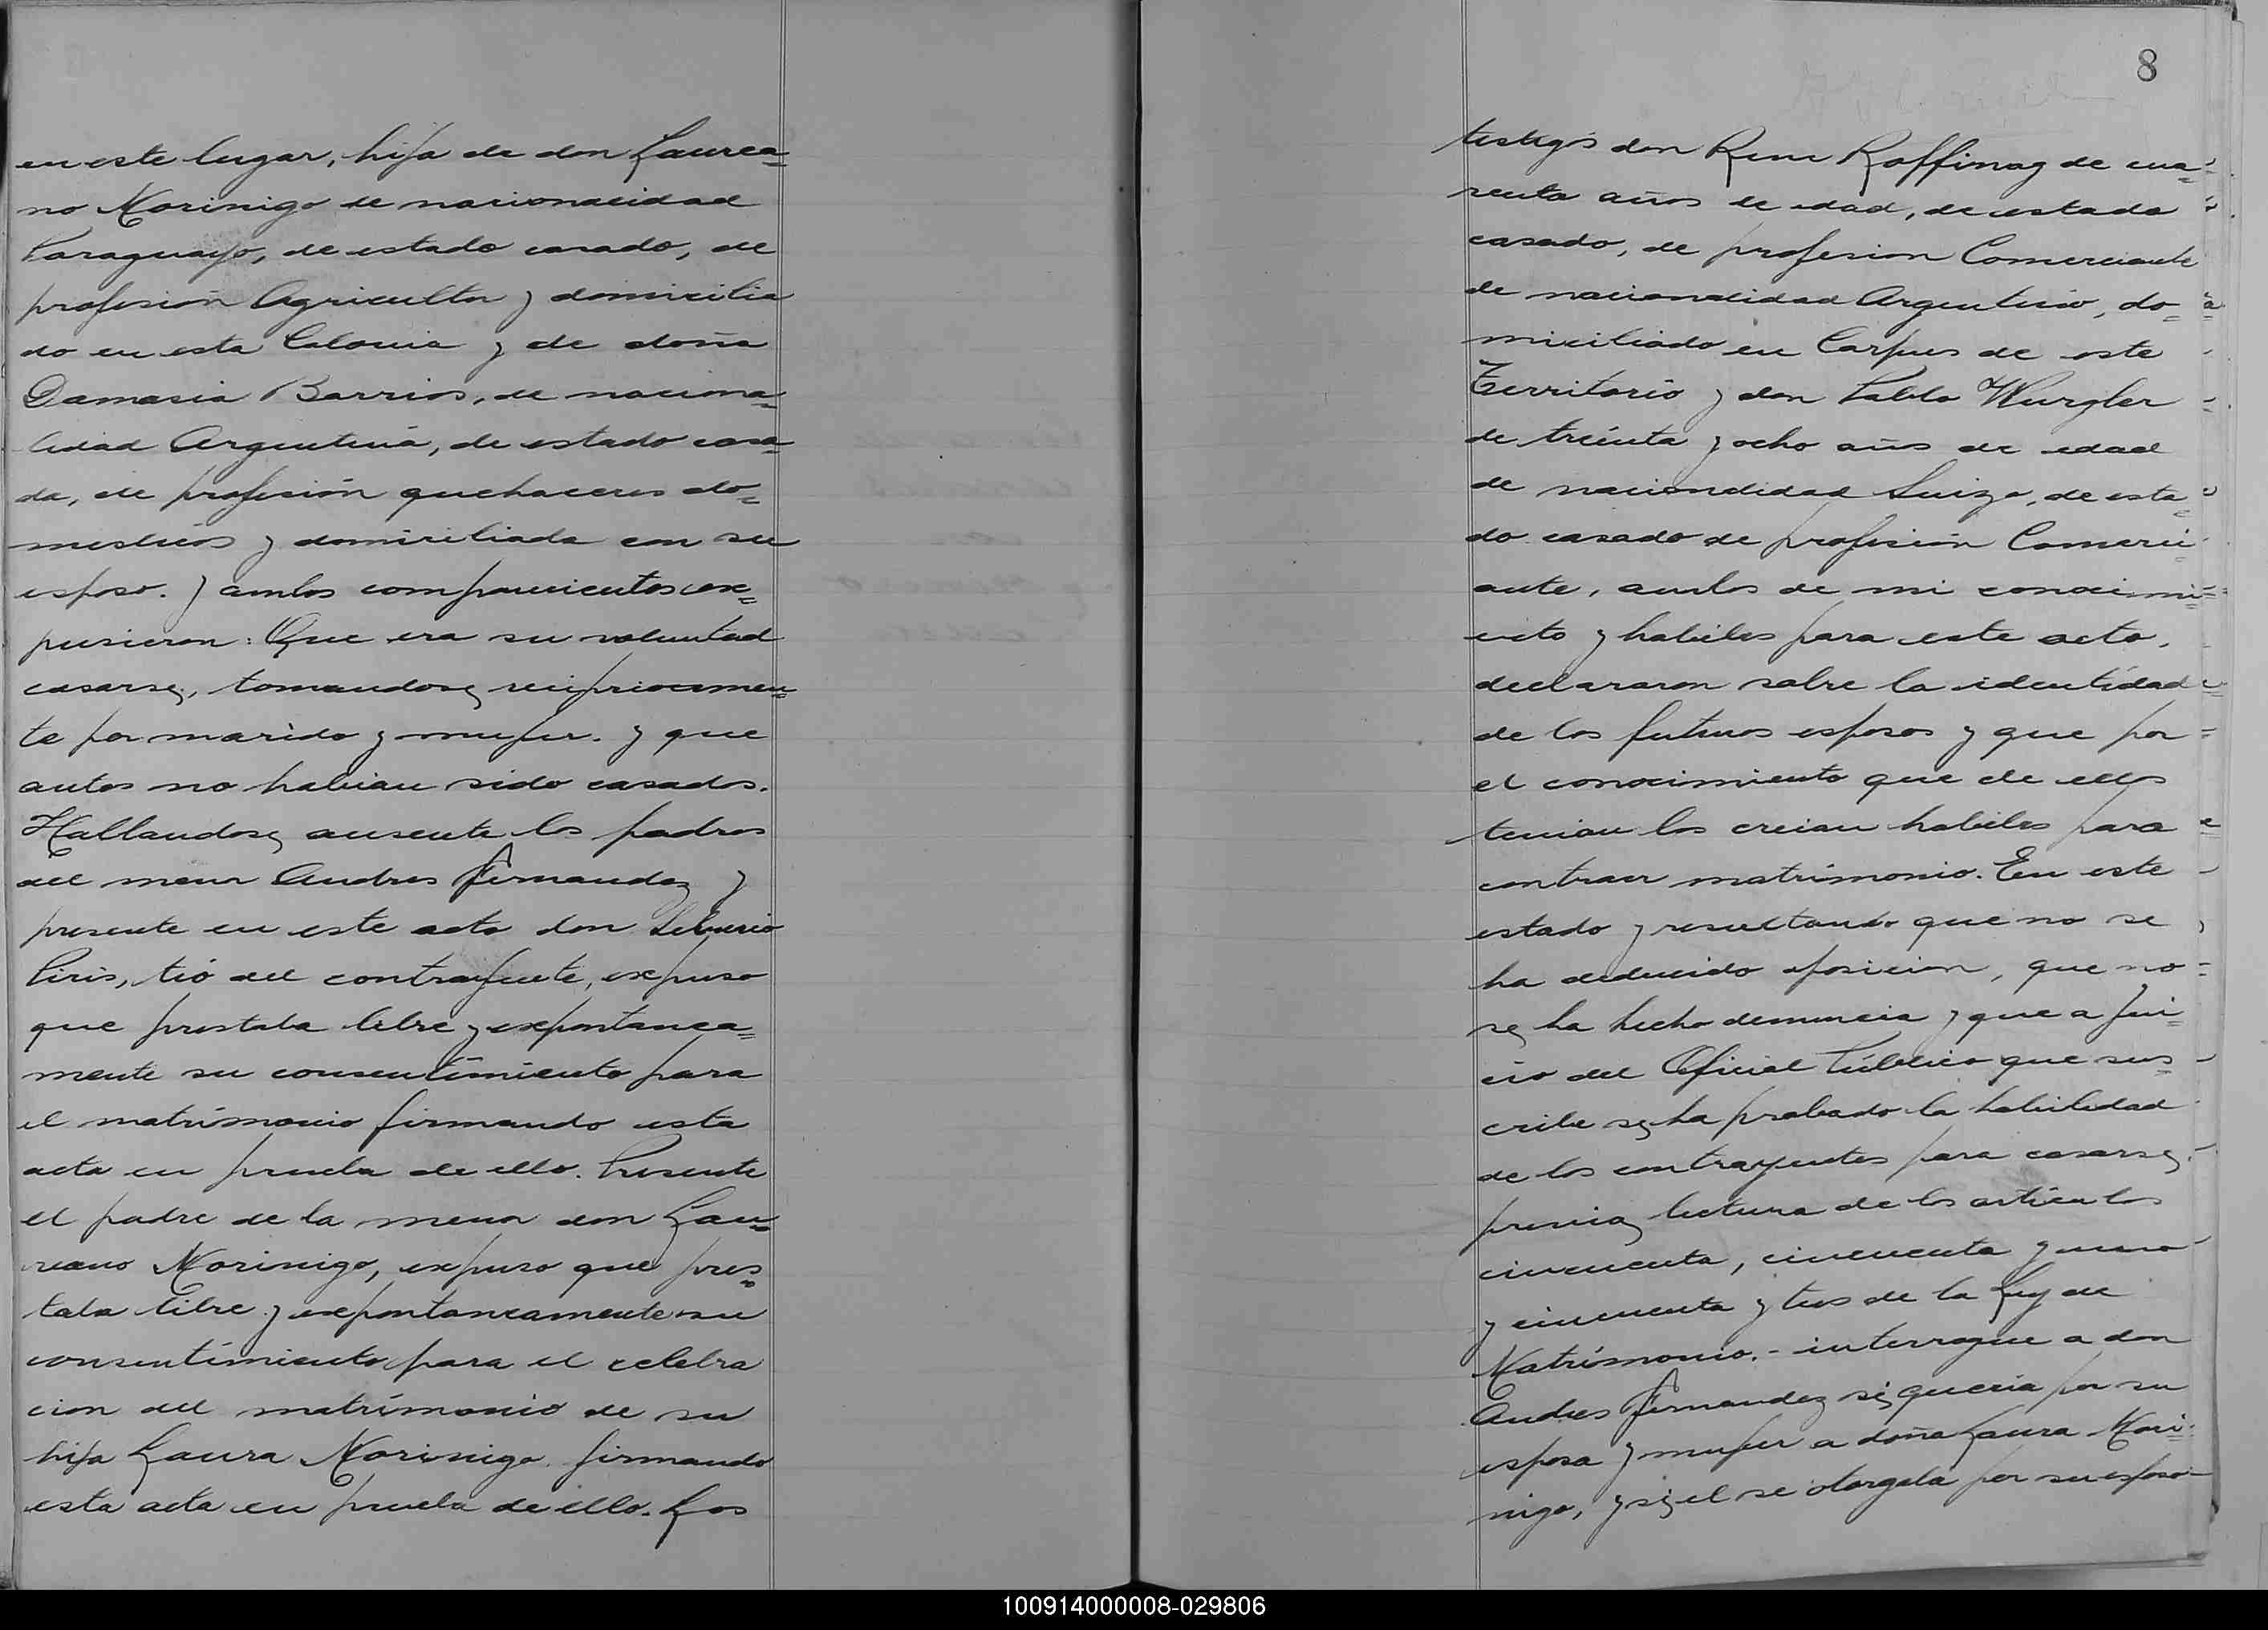 en este lugar, hija de don Laurea=
no Morinigo de nacionalidad
Paraguayo, de estado casado, de
profesión Agricultor y domicilia
do en esta Colonia y de doña
Damasia Barrios, de naciona=
lidad Argentina, de estado casa=
da, de profesión quehaceres do=
mesticos y domiciliada con su
esposo. y ambos comparecientes ex=
pusieron: Que era su voluntad
casarse, tomandose reciprocamen=
te por marido y mujer. y que
antes no habian sido casados.
Hallandose ausente los padres
del menor Andres Fernandez y
presente en este acto don Liberio
Piris, tio del contrayente, expuso
que prestaba libre y expontanea=
mente su consentimiento para
el matrimonio firmando esta
acta en prueba de ello. Presente
el padre de la menor don Lau=
reano Morinigo, expuso que pres=
taba libre y expontaneamente su
consentimiento para el celebra
cion del matrimonio de su
hija Laura Morinigo firmando
esta acta en prueba de ello. Los
8
testigos don Rene Roffinag de cua=
renta años de edad, de estado
casado, de profesion Comerciante
de nacionalidad Argentino, do=
miciliado en Corpus de este
Territorio y don Pablo Wurgler
de treinta y ocho años de edad
de nacionalidad Suizo, de esta=
do casado de profesión Comerci
ante, ambos de mi conocimi=
ento y habiles para este acto,
declararon sobre la identidad
de los futuros esposos y que por
el conocimiento que de ellos
tenian los creian habiles para
contraer matrimonio. En este
estado y resultando que no se
ha deducido oposicion, que no
se ha hecho denuncia y que a jui
cio del Oficial Público que sus=
cribe se ha probado la habilidad
de los contrayentes para casarse,
previa lectura de los articulos
cincuenta, cincuenta y uno
y cincuenta y tres de la Ley de
Matrimonio.- interrogue a don
Andres Fernandez si queria por su
esposa y mujer a doña Laura Mori=
nigo, y si el se otorgaba por su esposo
100914000008-029806